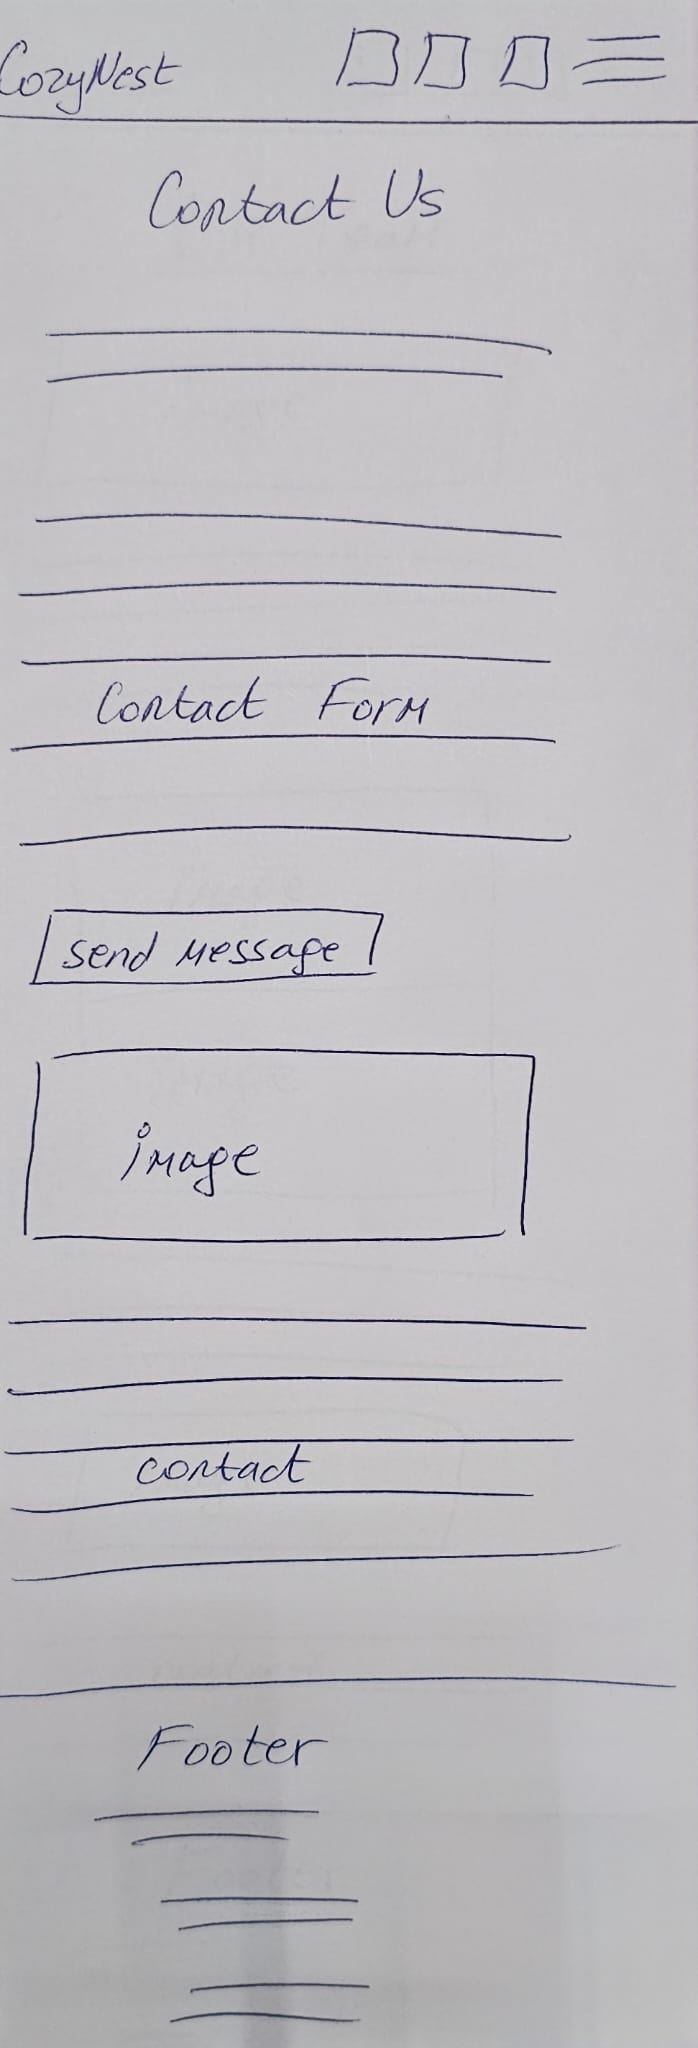 CozyNest
Contact Us
Contact Form
send message
image
contact
Footer